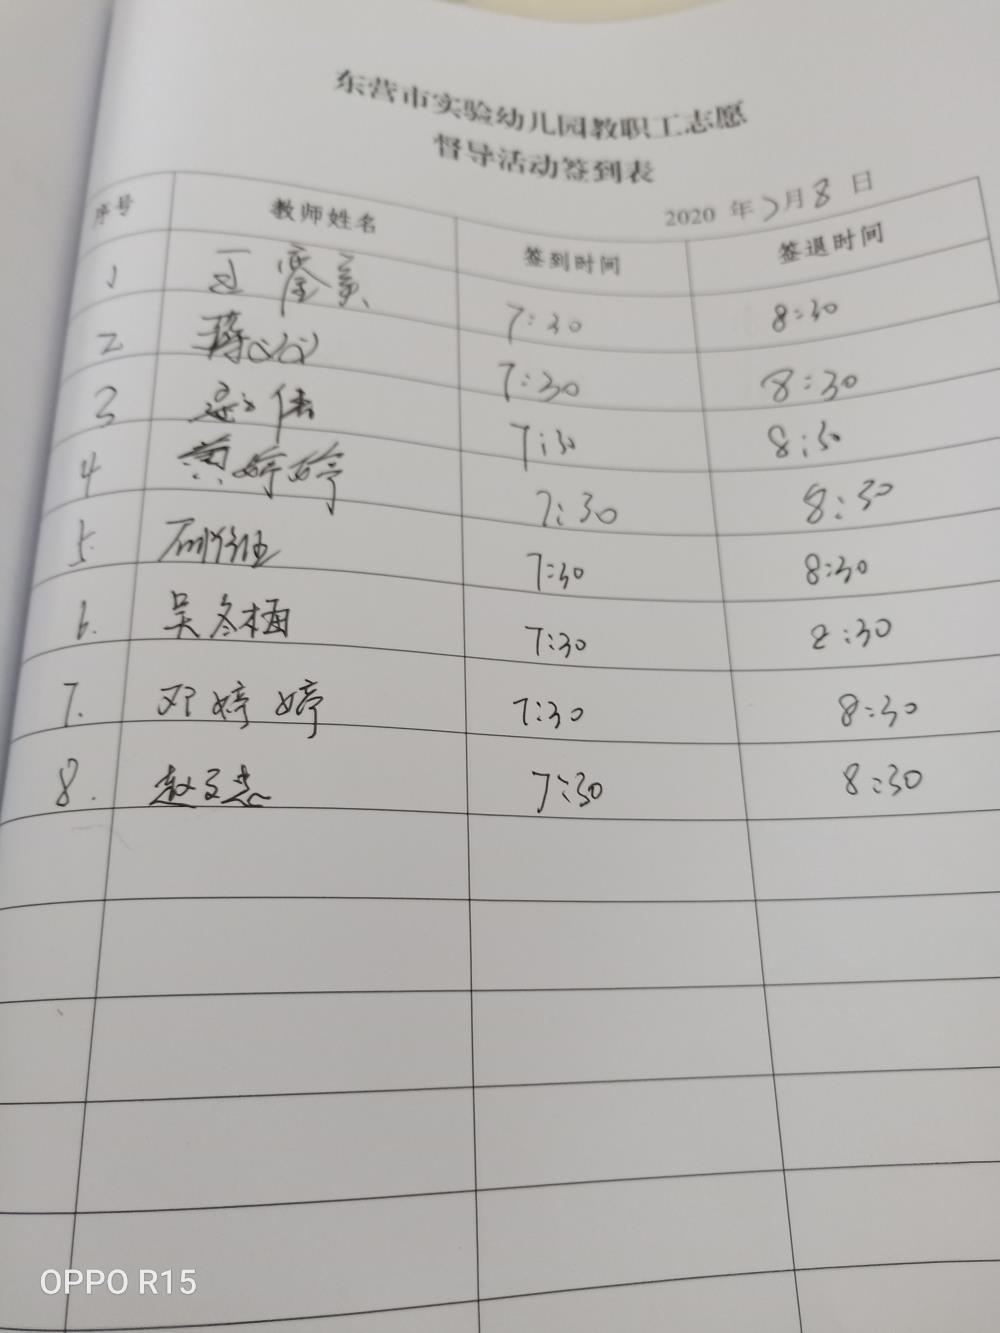 东营市实验幼儿园教职工志愿
督导活动签到表
2020 年 7月 8 日
序号 教师姓名 签到时间 签退时间
1 7:30 8:30
2 7:30 8:30
3 7:30 8:30
4 黄婷婷 7:30 8:30
5. 7:30 8:30
6. 吴冬梅 7:30 8:30
7. 邓婷婷 7:30 8:30
8. 赵文杰 7:30 8:30
OPPO R15